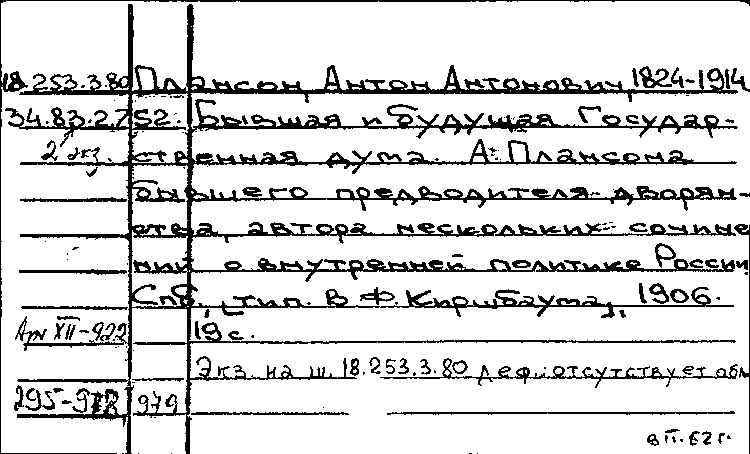 18.253.3.80 Плансон, Антон Антонович, 1824-1914
34.83.2.752. Бывшая и будущая Государ-
2 экз. ственная дума. А. Плансона
бывшего предводителя дворян-
ства, автора нескольких сочине
ний о внутренней политике России
Спб., [тип. В. Ф. Киршбаума], 1906.
Арх XII-922 19 с.
Экз. на ш. 18.253.3.80 деф.: отсутствует обл
295-978 979